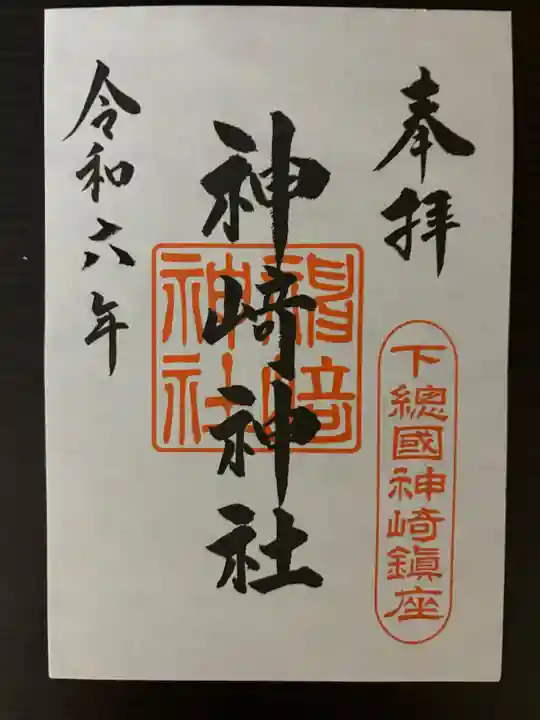 奉拝
下總國神崎鎮座
神崎神社
神崎
神社
令和六年